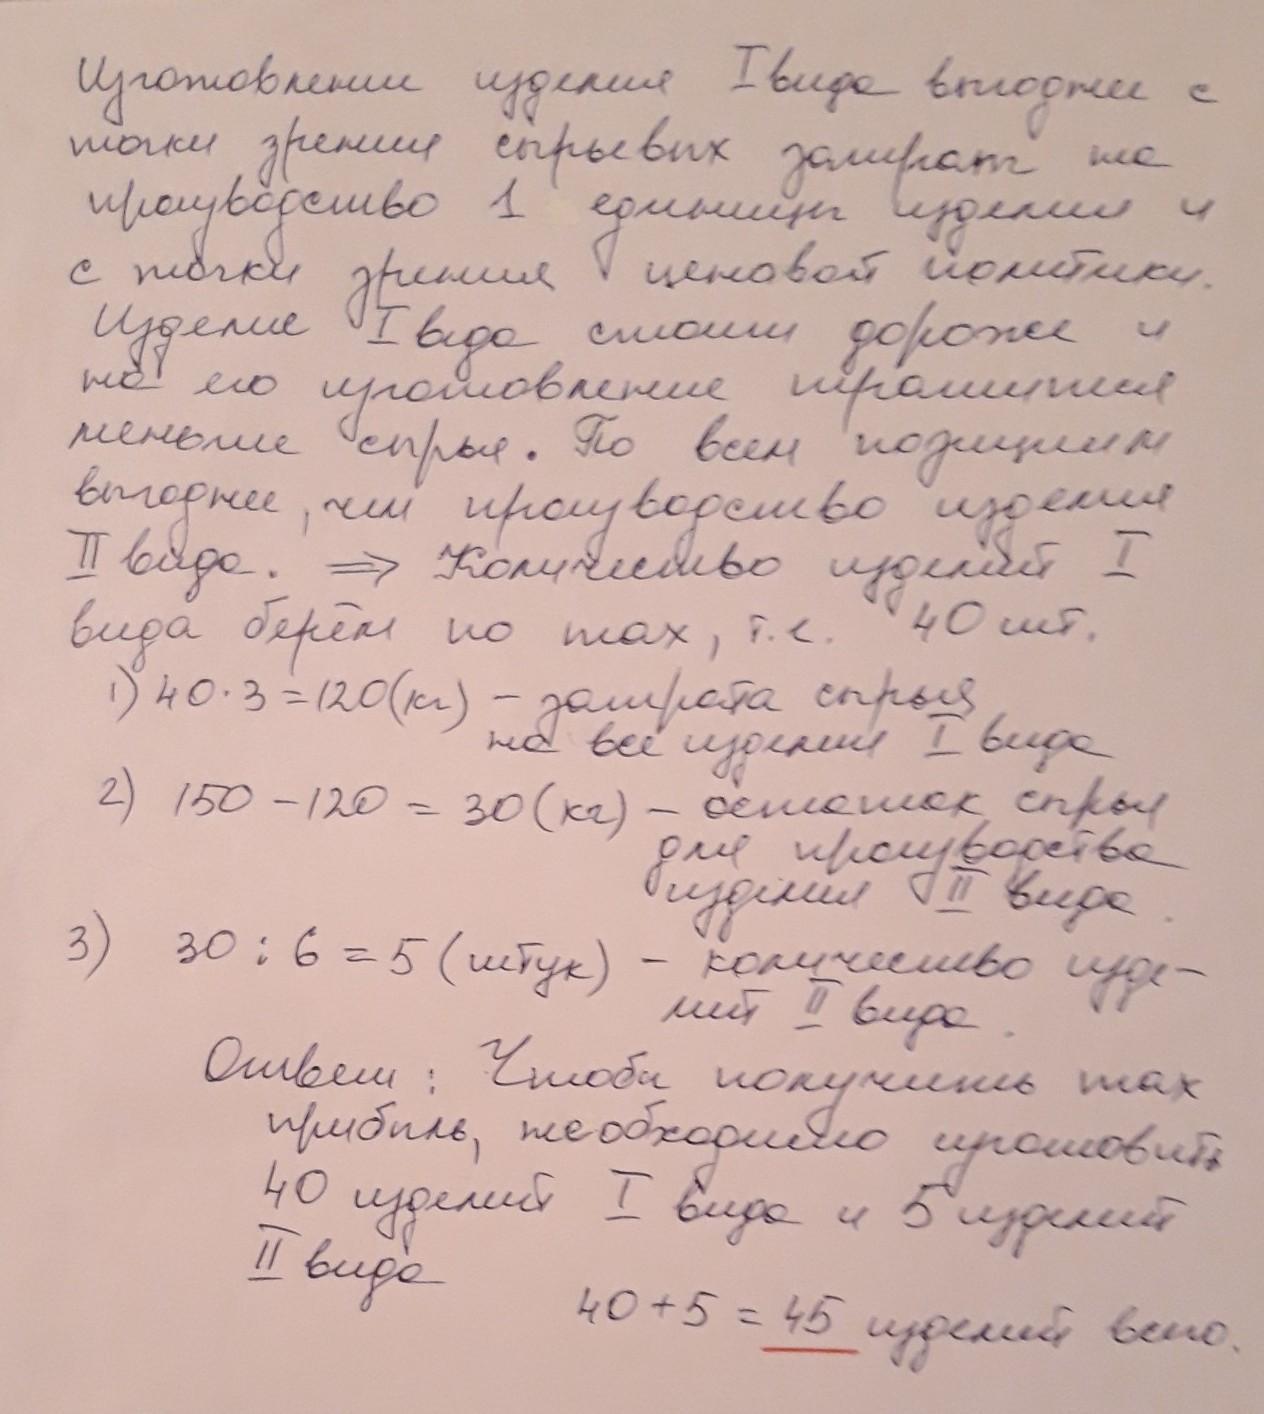 Изготовление изделия I вида выгоднее с
точки зрения сырьевых затрат на
производство 1 единицы изделия и
с точки зрения ценовой политики.
Изделие I вида стоит дороже и
на его изготовление тратится
меньше сырья. По всем позициям
выгоднее, чем производство изделия
II вида. ⇒ Количество изделий I
вида берём по max, т.е. 40 шт.
1) 40·3=120(кг) – затрата сырья
на все изделия I вида
2) 150 – 120 = 30 (кг) – остаток сырья
для производства
изделия II вида.
3) 30 : 6 = 5 (штук) – количество изде-
лий II вида.
Ответ: Чтобы получить max
прибыль, необходимо изготовить
40 изделий I вида и 5 изделий
II вида
40+5 = 45 изделий всего.